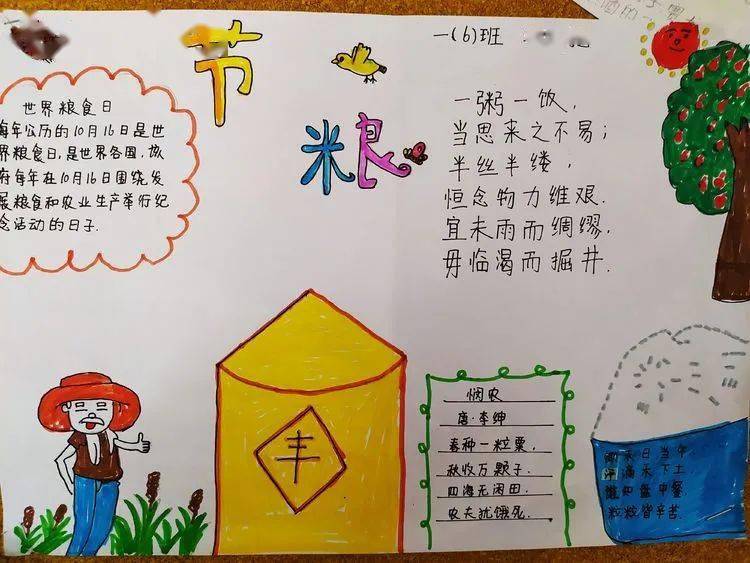 节
粮
一(6)班
世界粮食日
每年公历的10月16日是世
界粮食日,是世界各国,政
府每年在10月16日围绕发
展粮食和农业生产举行纪
念活动的日子.
一粥一饭,
当思来之不易;
半丝半缕,
恒念物力维艰.
宜未雨而绸缪,
毋临渴而掘井.
丰
悯农
唐·李绅
春种一粒粟,
秋收万颗子.
四海无闲田,
农夫犹饿死.
禾日当午
汗滴禾下土
谁知盘中餐
粒粒皆辛苦